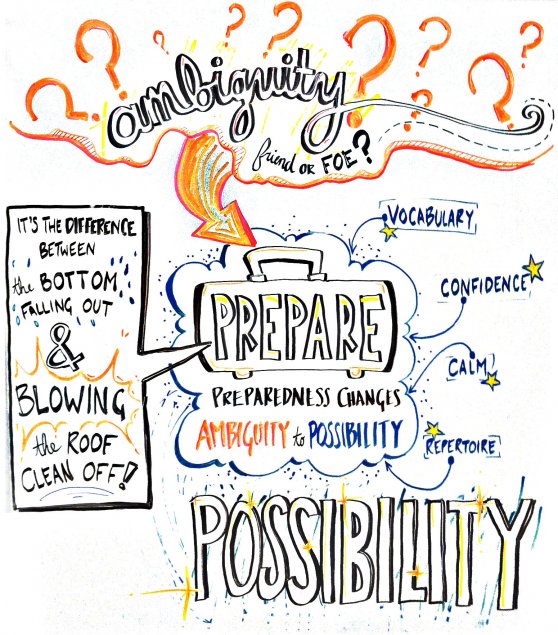 ambiguity
friend OR FOE?
IT'S THE DIFFERENCE
BETWEEN
the BOTTOM
FALLING OUT
&
BLOWING
the ROOF
CLEAN OFF!
PREPARE
PREPAREDNESS CHANGES
AMBIGUITY to POSSIBILITY
VOCABULARY
CONFIDENCE
CALM
REPERTOIRE
POSSIBILITY